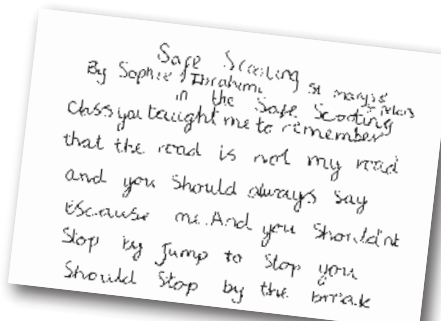 Safe Scooting
By Sophie Ibrahimi St mary's
in the Safe Scooting
class you taught me to remember
that the road is not my road
and you should always say
Escause me. And you shouldnt
Stop by Jump to Stop you
Should Stop by the break